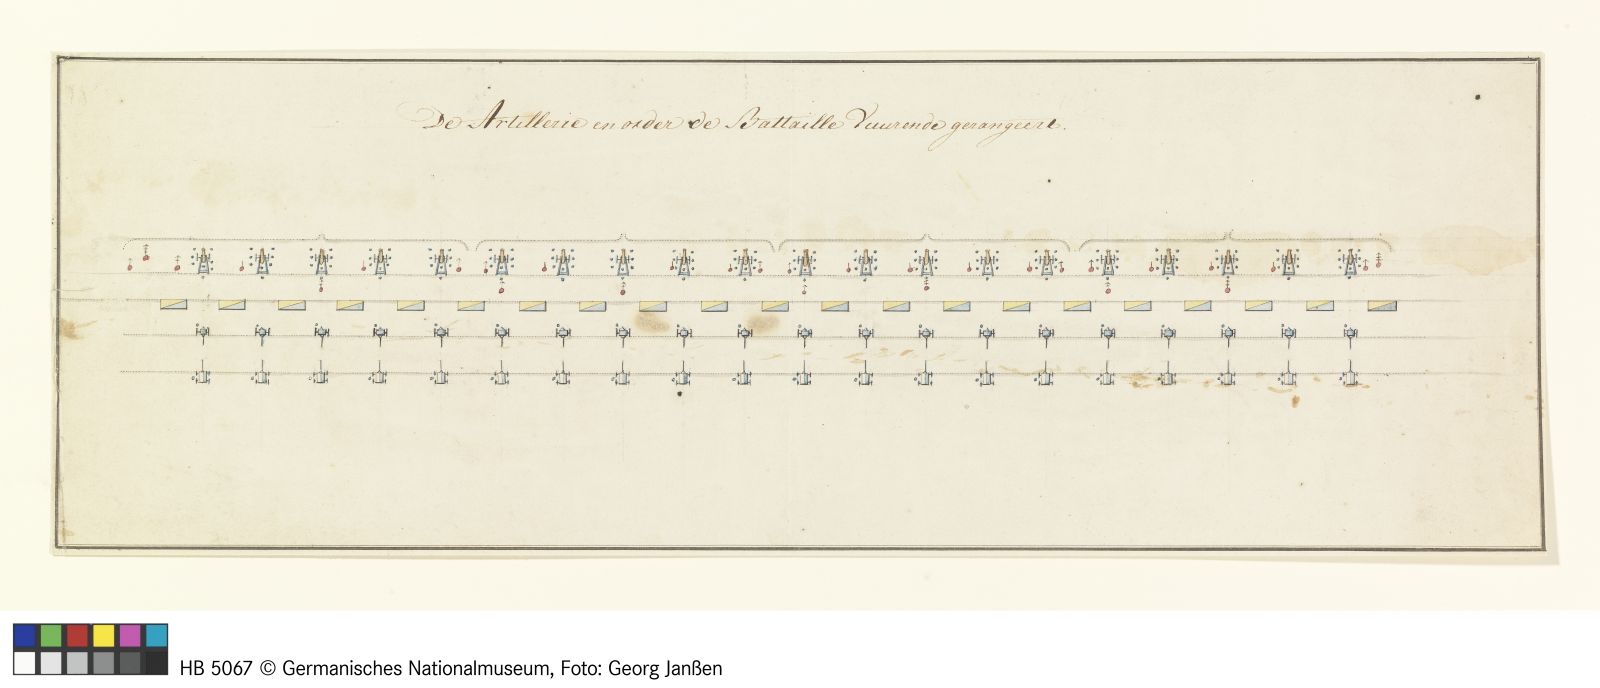 De Artillerie en order de Battaille Vuurende gerangeert.
HB 5067 © Germanisches Nationalmuseum, Foto: Georg Janßen